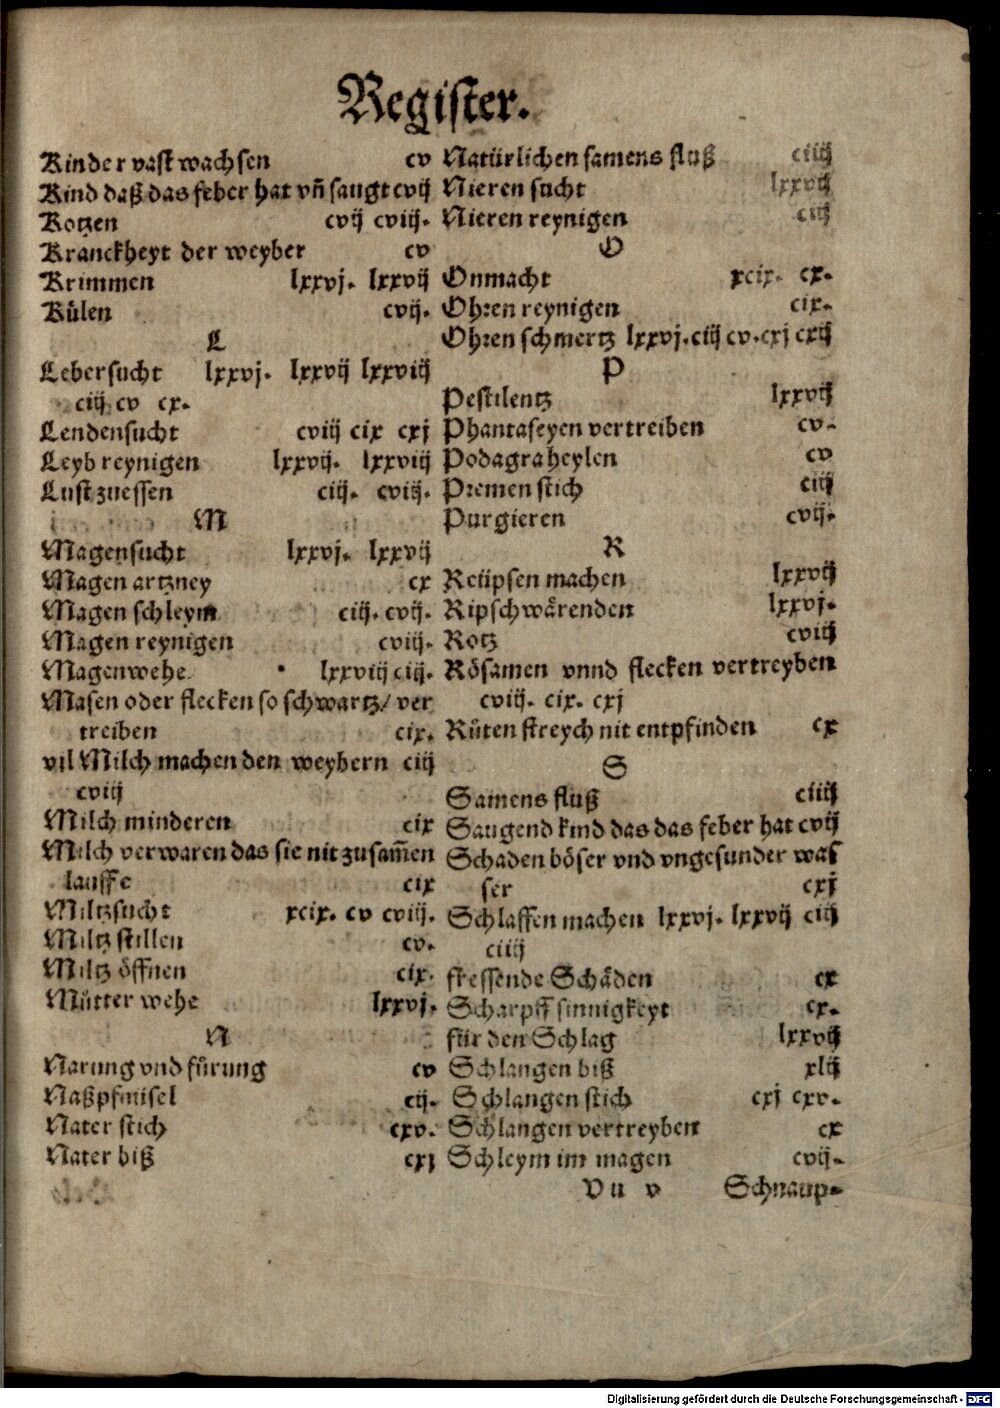 Register.
Kinder vast wachsen cv
Kind daß das feber hat vñ saugt cvij
Kotzen cvij cviij.
Kranckheyt der weyber cv
Krimmen lxxvj. lxxvij
Külen cvij.
L
Lebersucht lxxvj. lxxvij lxxviij
ciij cv cx.
Lendensucht cviij cix cxj
Leyb reynigen lxxvij. lxxviij
Lust zuessen ciij. cviij.
M
Magensucht lxxvj. lxxvij
Magen artzney cx
Magen schleym ciij. cvij.
Magen reynigen cviij.
Magenwehe lxxviij ciij.
Masen oder flecken so schwartz/ ver
treiben cix.
vil Milch machen den weybern ciij
cviij
Milch minderen cix
Milch verwaren das sie nit zusam̃en
lauffe cix
Miltzsucht xcix. cv cviij.
Miltz stillen cv.
Miltz öffnen cix.
Mütter wehe lxxvj.
N
Narung vnd fürung cv
Naßpfnisel cij.
Nater stich cxv.
Nater biß cxj
Natürlichen samens fluß ciiij
Nieren sucht lxxvij
Nieren reynigen ciij
O
Onmacht xcix. cx.
Ohren reynigen cix.
Ohren schmertz lxxvj. ciij cv. cxj cxij
P
Pestilentz lxxvij
Phantaseyen vertreiben cv.
Podagra heylen cv
Premen stich ciij
Purgieren cvij.
R
Reüpsen machen lxxvij
Ripschwärenden lxxvj.
Rotz cviij
Rösamen vnnd flecken vertreyben
cviij. cix. cxj
Rüten streych nit entpfinden cx
S
Samens fluß ciiij
Saugend kind das das feber hat cvij
Schaden böser vnd vngesunder was
ser cxj
Schlaffen machen lxxvj. lxxvij ciij
ciiij
fressende Schäden cx
Scharpff sinnigkeyt cx.
für den Schlag lxxvij
Schlangen biß xlij
Schlangen stich cxj cxv.
Schlangen vertreyben cx
Schleym im magen cvij.
Vu v Schnaup-
Digitalisierung gefördert durch die Deutsche Forschungsgemeinschaft - DFG